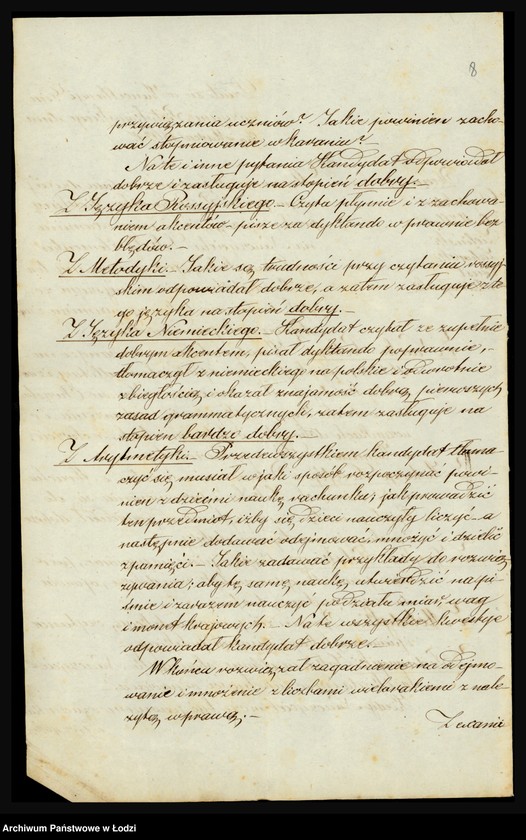 8
przywiązania uczniów? Jakie powinien zacho-
wać stopniowanie w karaniu?
Na te i inne pytania Kandydat odpowiadał
dobrze i zasługuje na stopień dobry.-
Z Języka Rossyjskiego.- Czyta płynnie i z zachowa-
niem akcentów - pisze za dyktando w prawnie bez
błędów.-
Z Metodyki.- Jakie są trudności przy czytaniu rossyj-
skim odpowiadał dobrze, a zatem zasługuje z te-
go języka na stopień dobry.-
Z Języka Niemieckiego.- Kandydat czytał ze zupełnie
dobrym akcentem, pisał dyktando poprawnie,-
tłomaczył z niemieckiego na polskie i odwrotnie
z biegłością i okazał znajomość dobrą pierwszych
zasad grammatycznych, zatem zasługuje na
stopień bardzo dobry.-
Z Arytmetyki.- Przedewszystkiem kandydat tłoma-
czyć się musiał w jaki sposób rozpoczynać powi-
nien z dziećmi naukę rachunku; jak prowadzić
ten przedmiot, iżby się dzieci nauczyły liczyć - a
następnie dodawać odejmować, mnożyć i dzielić
z pamięci.- Jakie zadawać przykłady do rozwią-
zywania; aby tę samę naukę utwierdzić na pi-
śmie i zarazem nauczyć podziału miar, wag
i monet krajowych.- Na te wszystkie kwestye
odpowiadał kandydat dobrze.-
W końcu rozwiązał zagadnienie na odejmo-
wanie i mnożenie z liczbami wielorakiemi z nale-
żytą wprawą.-
Archiwum Państwowe w Łodzi